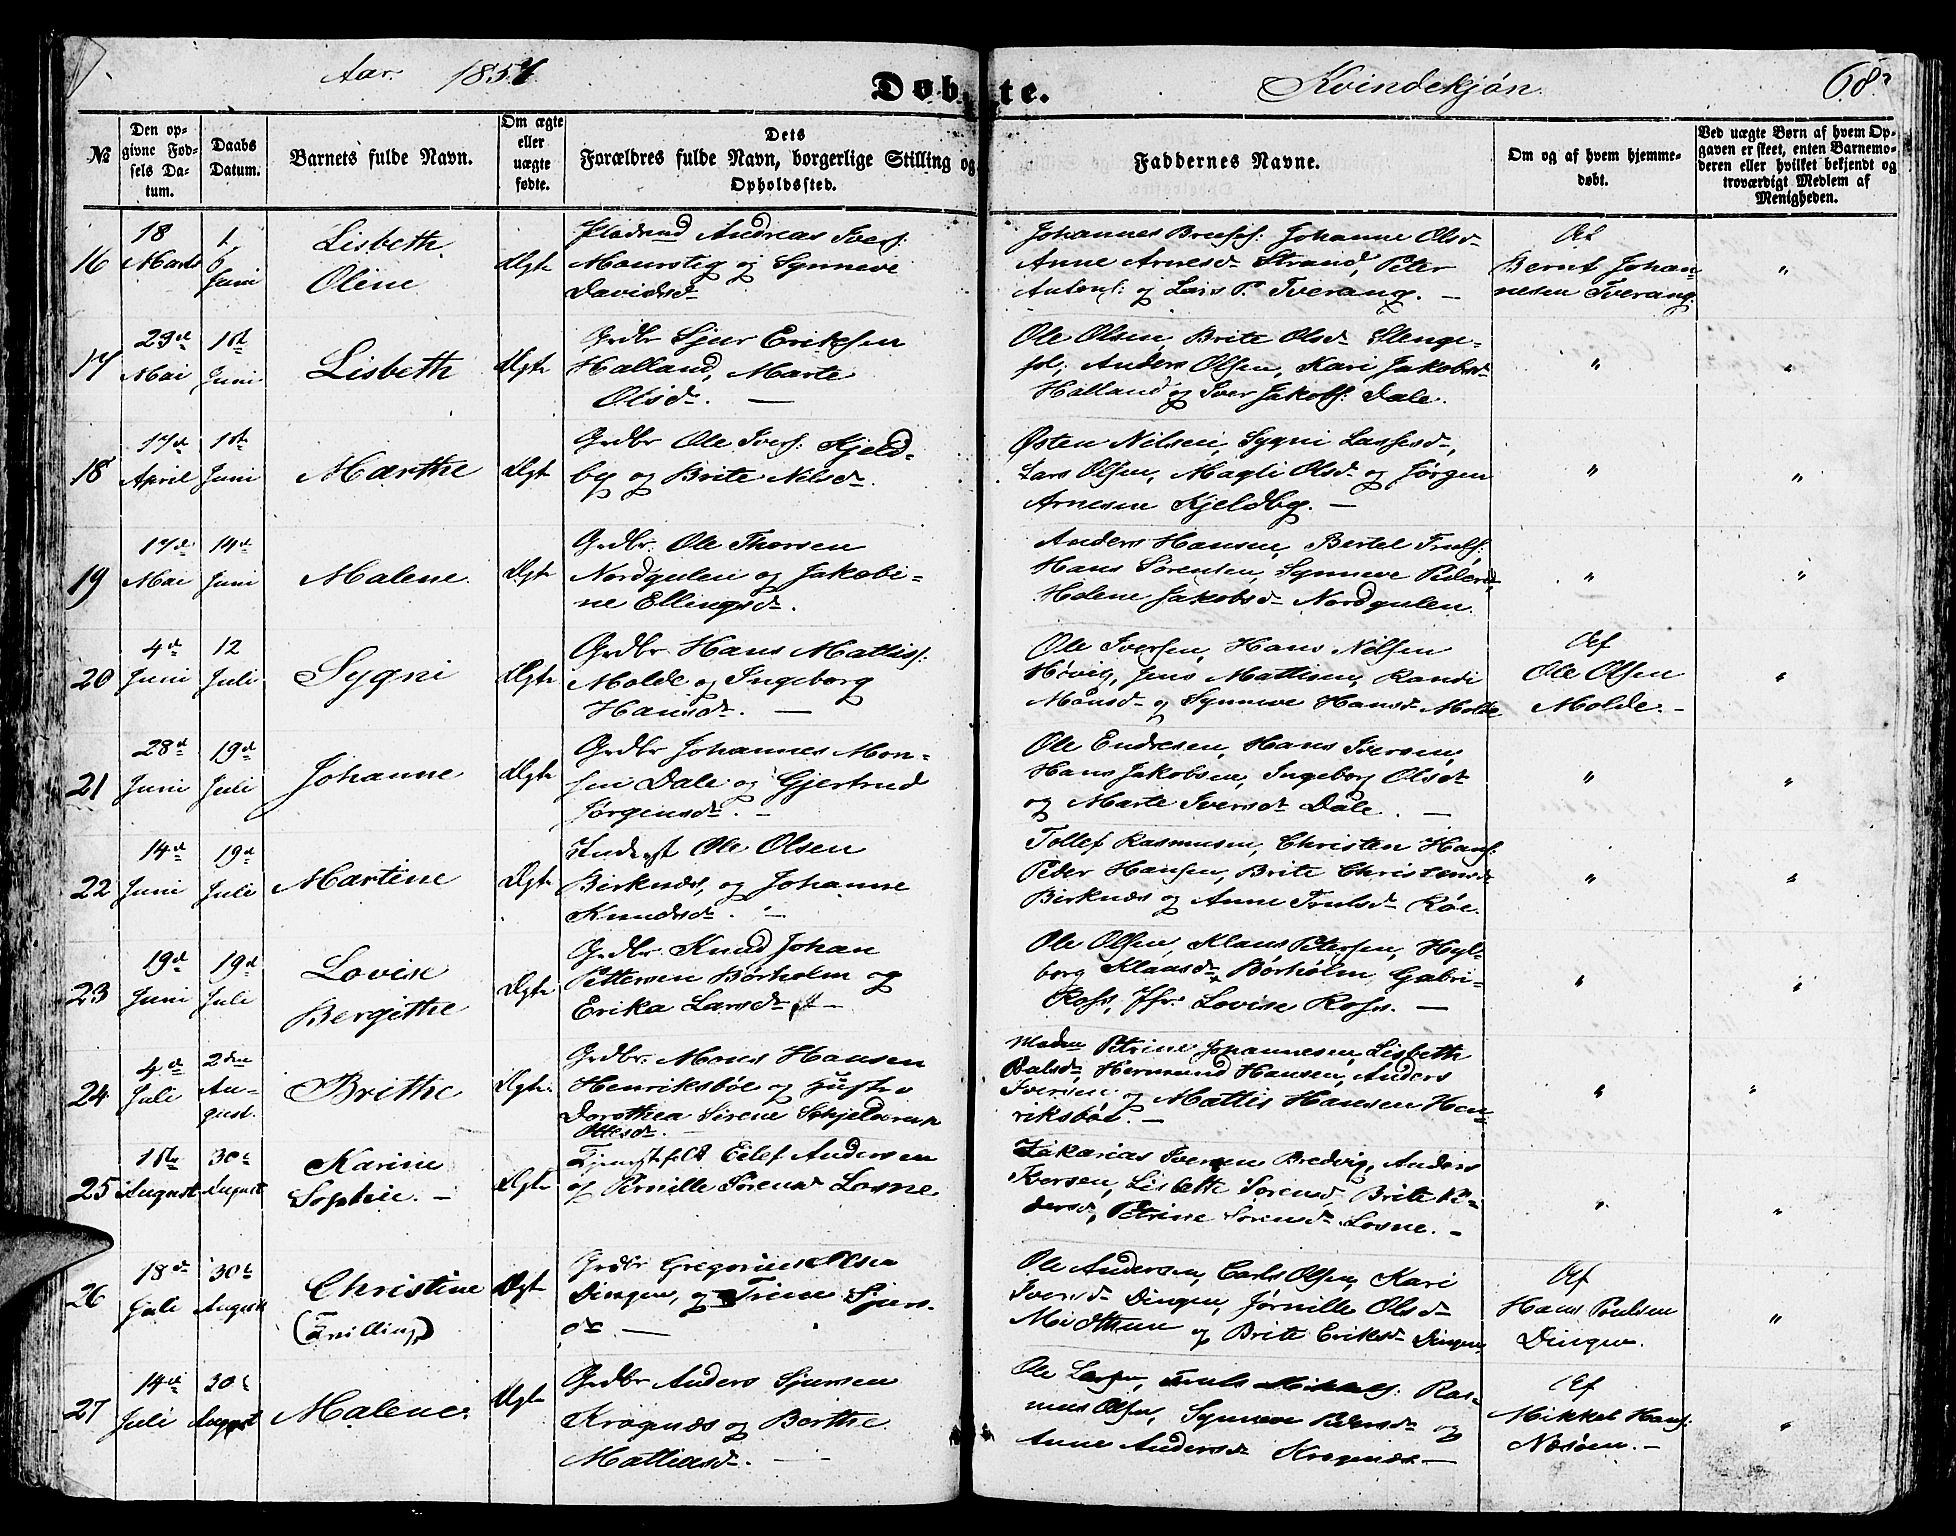 Aar 1857
Døbte.
Kvindekjøn.
68.
№
Den opgivne Fødsels Datum.
Daabs Datum.
Barnets fulde Navn.
Om ægte eller uægte fødte.
Dets Forældres fulde Navn, borgerlige Stilling og Opholdssted.
Faddernes Navne.
Om og af hvem hjemmedøbt.
Ved uægte Børn af hvem Opgaven er skeet, enten Barnemoderen eller hvilket bekjendt og troværdigt Medlem af Menigheden.
16
18 Marts
1 Juni
Lisbeth
Oline
Ægte
Andreas Ivers:
og Synneve
Davidsd.
Johannes Johanne Olsd.
Anne Arnesd. Strand, Peter
Antons: og Lars P. Tverang. —
Af
Bernt Johan-
nesen Tverang.
"
17
29de Mai
1ste Juni
Lisbeth
Ægte
Grdbr Sjur Eriksen
Halland, Marte
Olsd. —
Ole Olsen, Brite Olsd. Slenge-
sol, Anders Olsen, Kari Jakobsd.
Halland og Iver Jakobs: Dale.
"
"
18
17de April
1ste Juni
Marthe
Ægte
Grdbr Ole Ivers: Kjeld-
by og Brite Nilsd.
Østen Nilsen, Sygni Lassesd.,
Lars Olsen, Magli Olsd. og Jørgen
Arnesen Kjeldby. —
"
"
19
17de Mai
14de Juni
Malene.
Ægte
Grdbr. Ole Thorsen
Nordgulen og Jakobi-
ne Ellingsd.
Anders Hansen, Bertel Truls:
Hans Sørensen, Synneve Pedersd.,
Helene Jakobsd. Nordgulen.
"
"
20
4de Juni
12 Juli
Sygni
Ægte
Grdbr. Hans Mattis:
Molde og Ingeborg
Hansd. —
Ole Iversen, Hans Nilsen
Høvig, Jens Mattisen, Randi
Monsd. og Synneve Hansd. Molde
Af
Ole Olsen
Molde. —
"
21
28de Juni
19de Juli
Johanne
Ægte
Grdbr Johannes Mon-
sen Dale og Gjertrud
Jørgensd. —
Ole Endresen, Hans Iversen,
Hans Jakobsen, Ingeborg Olsd.
og Marte Iversd. Dale. —
"
"
22
14de Juni
19de Juli
Martine
Ægte
Ole Olsen
Birknes, og Johanne
Knudsd. —
Tollef Rasmusen, Christen Hans:
Peder Hansen, Brite Christensd.
Birknes og Anne Trulsd. Röe.
"
"
23
19de Juni
19de Juli
Lovise
Bergithe
Ægte
Grdbr. Knud Johan
Pettersen Børholm og
Erika Larsd. —
Ole Olsen, Klaus Petersen, Hyl-
borg Klausd. Børholm, Gabri-
Ross, Jfr: Lovise Ross. —
"
"
24
4de Juli
2den August.
Brithe
Ægte.
Grdbr. Mons Hansen
Henriksbøe og Hustru
Dorothea Sirene Schjelderup
Ottesd. —
Madm Petrine Johannesen, Lisbeth
Hermund Hansen, Anders
Iversen og Mattis Hansen Hen-
riksbøe. —
"
"
25
1ste August
30te August
Karine
Sophie. —
Ægte
Tjenstefolk Eilef Andersen
og Pernille Sørensd. Losne.
Zakarias Iversen Bredvig, Anders
Iversen, Lisbette Sørensd. Brite Pe-
dersd., Petrine Sørensd. Losne. —
"
"
26
18de Juli
30te August
Christine
(Tvilling)
Ægte
Grdbr Gregorius Olsen
Dingen, og Trine Sjurs-
d. —
Ole Andersen, Carls Olsen, Kari
Iversd. Dingen, Jørnille Olsd.
Midttun og Brite Eriksd. Dingen,
Af
Hans Poulsen
Dingen.
"
27
14de Juli
30te August
Malene.
Ægte
Grdbr Anders Sjursen
Kragnæs og Berthe
Mattiasd. —
Ole Larsen, Truls Mikkels: Ras-
mus Olsen, Synneve Pedersd. og
Anne Andersd. Kragnæs. —
Af
Mikkel Hans:
Nesøen. —
"